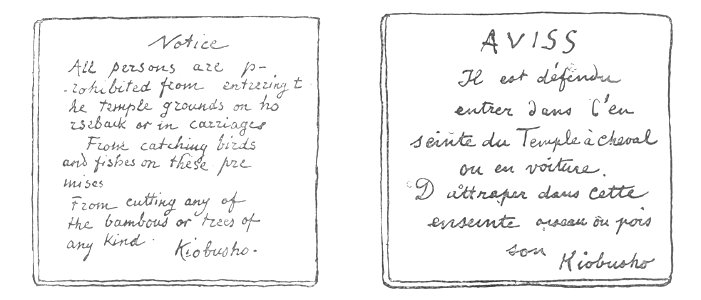 Notice
All persons are p-
-rohibited from entrering t
he temple grounds on ho
rseback or in carriages
From catching birds
and fishes on these pre
mises
From cutting any of
the bambous or trees of
any Kind.
Kiobusho.
AVISS
Il est défendu
entrer dans l'en
seinte du Temple à cheval
ou en voiture.
D attraper dans cette
enseinte oiseau ou pois
son
Kiobusho